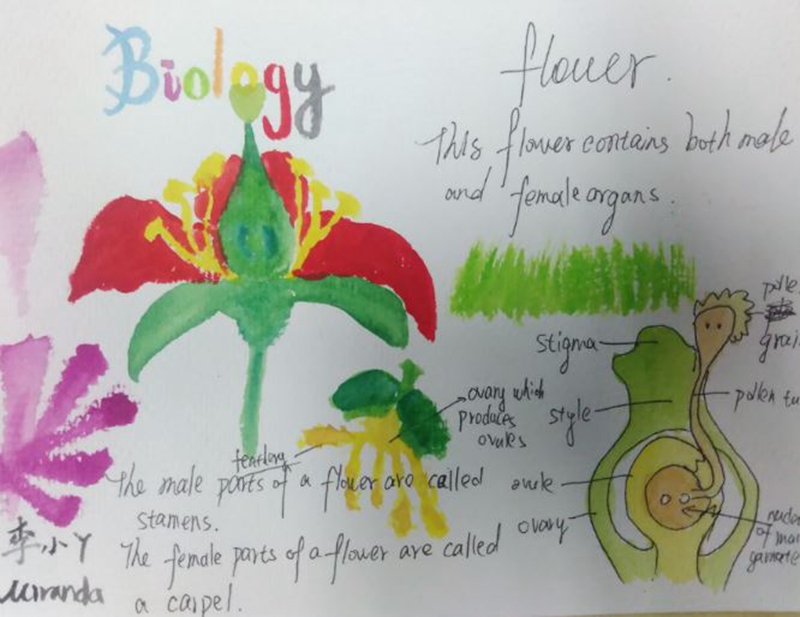 Biology
flower.
This flower contains both male
and female organs.
stigma
style
pollen
ovule
ovary
ovary which
produces
ovules
The male parts of a flower are called
stamens.
The female parts of a flower are called
a carpel.
李小丫
Miranda